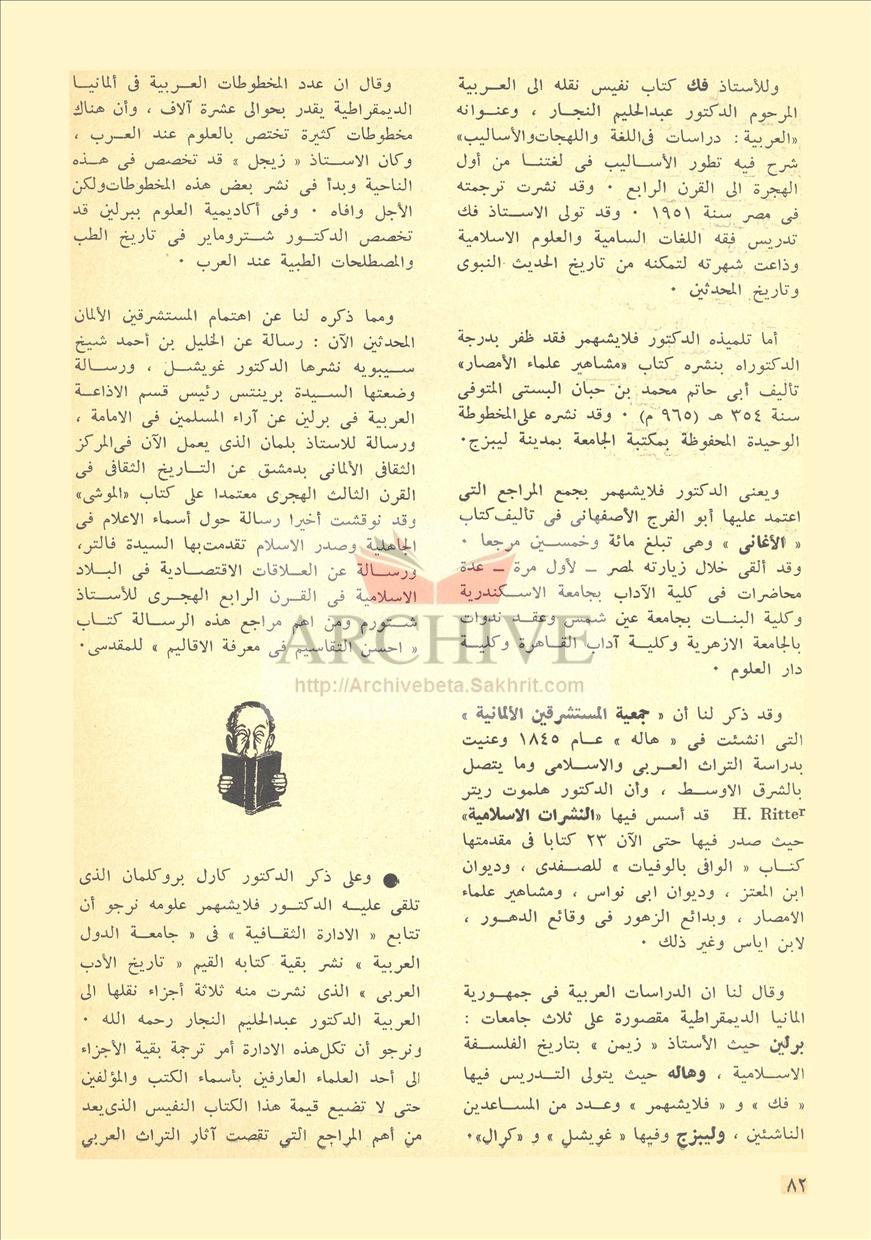 وللأستاذ فك كتاب نفيس نقله الى العربية
المرحوم الدكتور عبدالحليم النجار ، وعنوانه
«العربية : دراسات فى اللغة واللهجات والأساليب»
شرح فيه تطور الأساليب فى لغتنا من أول
الهجرة الى القرن الرابع ٠ وقد نشرت ترجمته
فى مصر سنة ١٩٥١ ٠ وقد تولى الاستاذ فك
تدريس فقه اللغات السامية والعلوم الاسلامية
وذاعت شهرته لتمكنه من تاريخ الحديث النبوى
وتاريخ المحدثين ٠
أما تلميذه الدكتور فلايشهمر فقد ظفر بدرجة
الدكتوراه بنشره كتاب «مشاهير علماء الأمصار»
تأليف أبى حاتم محمد بن حبان البستى المتوفى
سنة ٣٥٤ هـ (٩٦٥ م) ٠ وقد نشره على المخطوطة
الوحيدة المحفوظة بمكتبة الجامعة بمدينة ليبزج٠
ويعنى الدكتور فلايشهمر بجمع المراجع التى
اعتمد عليها أبو الفرج الأصفهانى فى تأليف كتاب
« الأغانى » وهى تبلغ مائة وخمسين مرجعا ٠
وقد ألقى خلال زيارته لمصر ــ لأول مرة ــ عدة
محاضرات فى كلية الآداب بجامعة الاسكندرية
وكلية البنات بجامعة عين شمس وعقد ندوات
بالجامعة الازهرية وكلية آداب القاهرة وكلية
دار العلوم ٠
وقد ذكر لنا أن « جمعية المستشرقين الألمانية »
التى انشئت فى « هاله » عام ١٨٤٥ وعنيت
بدراسة التراث العربى والاسلامى وما يتصل
بالشرق الاوسط ، وأن الدكتور هلموت ريتر
H. Ritter قد أسس فيها «النشرات الاسلامية»
حيث صدر فيها حتى الآن ٢٣ كتابا فى مقدمتها
كتاب « الوافى بالوفيات » للصفدى ، وديوان
ابن المعتز ، وديوان ابى نواس ، ومشاهير علماء
الامصار ، وبدائع الزهور فى وقائع الدهور ،
لابن اياس وغير ذلك ٠
وقال لنا ان الدراسات العربية فى جمهورية
المانيا الديمقراطية مقصورة على ثلاث جامعات :
برلين حيث الأستاذ « زيمن » بتاريخ الفلسفة
الاسلامية ، وهاله حيث يتولى التدريس فيها
« فك » و « فلايشهمر » وعدد من المساعدين
الناشئين ، وليبزج وفيها « غويشل » و «كرال»٠
وقال ان عدد المخطوطات العربية فى ألمانيا
الديمقراطية يقدر بحوالى عشرة آلاف ، وأن هناك
مخطوطات كثيرة تختص بالعلوم عند العرب ،
وكان الاستاذ « زيجل » قد تخصص فى هذه
الناحية وبدأ فى نشر بعض هذه المخطوطات ولكن
الأجل وافاه ٠ وفى أكاديمية العلوم ببرلين قد
تخصص الدكتور شتروماير فى تاريخ الطب
والمصطلحات الطبية عند العرب ٠
ومما ذكره لنا عن اهتمام المستشرقين الألمان
المحدثين الآن : رسالة عن الخليل بن أحمد شيخ
سيبويه نشرها الدكتور غويشل ، ورسالة
وضعتها السيدة برينتس رئيس قسم الاذاعة
العربية فى برلين عن آراء المسلمين فى الامامة ،
ورسالة للاستاذ بلمان الذى يعمل الآن فى المركز
الثقافى الألمانى بدمشق عن التاريخ الثقافى فى
القرن الثالث الهجرى معتمدا على كتاب «الموشى»
وقد نوقشت أخيرا رسالة حول أسماء الاعلام فى
الجاهلية وصدر الاسلام تقدمت بها السيدة فالتر،
ورسالة عن العلاقات الاقتصادية فى البلاد
الاسلامية فى القرن الرابع الهجرى للأستاذ
شتورم ومن اهم مراجع هذه الرسالة كتاب
« احسن التقاسيم فى معرفة الاقاليم » للمقدسى٠
● وعلى ذكر الدكتور كارل بروكلمان الذى
تلقى عليه الدكتور فلايشهمر علومه نرجو أن
تتابع « الادارة الثقافية » فى « جامعة الدول
العربية » نشر بقية كتابه القيم « تاريخ الأدب
العربى » الذى نشرت منه ثلاثة أجزاء نقلها الى
العربية الدكتور عبدالحليم النجار رحمه الله ٠
ونرجو أن تكل هذه الادارة أمر ترجمة بقية الأجزاء
الى أحد العلماء العارفين بأسماء الكتب والمؤلفين
حتى لا تضيع قيمة هذا الكتاب النفيس الذى يعد
من أهم المراجع التي تقصت آثار التراث العربي
٨٢
ARCHIVE
http://Archivebeta.Sakhrit.com